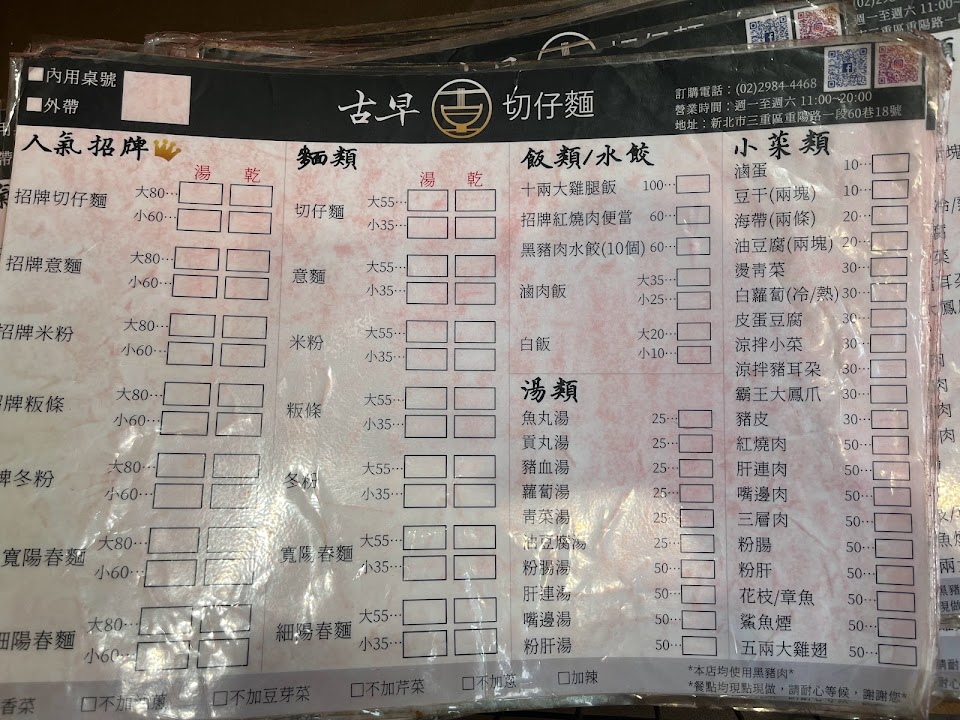 內用桌號
外帶
古早 切仔麵
訂購電話：(02)2984-4468
營業時間：週一至週六 11:00~20:00
地址：新北市三重區重陽路一段60巷18號
人氣招牌
湯 乾
招牌切仔麵 大80…
小60…
招牌意麵 大80…
小60…
招牌米粉 大80…
小60…
招牌粄條 大80…
小60…
牌冬粉 大80…
小60…
寬陽春麵 大80…
小60…
細陽春麵 大80…
小60…
麵類
湯 乾
切仔麵 大55…
小35…
意麵 大55…
小35…
米粉 大55…
小35…
粄條 大55…
小35…
冬粉 大55…
小35…
寬陽春麵 大55…
小35…
細陽春麵 大55…
小35…
飯類/水餃
十兩大雞腿飯 100…
招牌紅燒肉便當 60…
黑豬肉水餃(10個) 60…
滷肉飯 大35…
小25…
白飯 大20…
小10…
湯類
魚丸湯 25…
貢丸湯 25…
豬血湯 25…
蘿蔔湯 25…
青菜湯 25…
油豆腐湯 25…
粉腸湯 50…
肝連湯 50…
嘴邊湯 50…
粉肝湯 50…
小菜類
滷蛋 10…
豆干(兩塊) 10…
海帶(兩條) 20…
油豆腐(兩塊) 20…
燙青菜 30…
白蘿蔔(冷/熱) 30…
皮蛋豆腐 30…
涼拌小菜 30…
涼拌豬耳朵 30…
霸王大鳳爪 30…
豬皮 30…
紅燒肉 50…
肝連肉 50…
嘴邊肉 50…
三層肉 50…
粉腸 50…
粉肝 50…
花枝/章魚 50…
鯊魚煙 50…
五兩大雞翅 50…
香菜 不加豆芽菜 不加芹菜 不加蔥 加辣
*本店均使用黑豬肉*
*餐點均現點現做，請耐心等候，謝謝您*